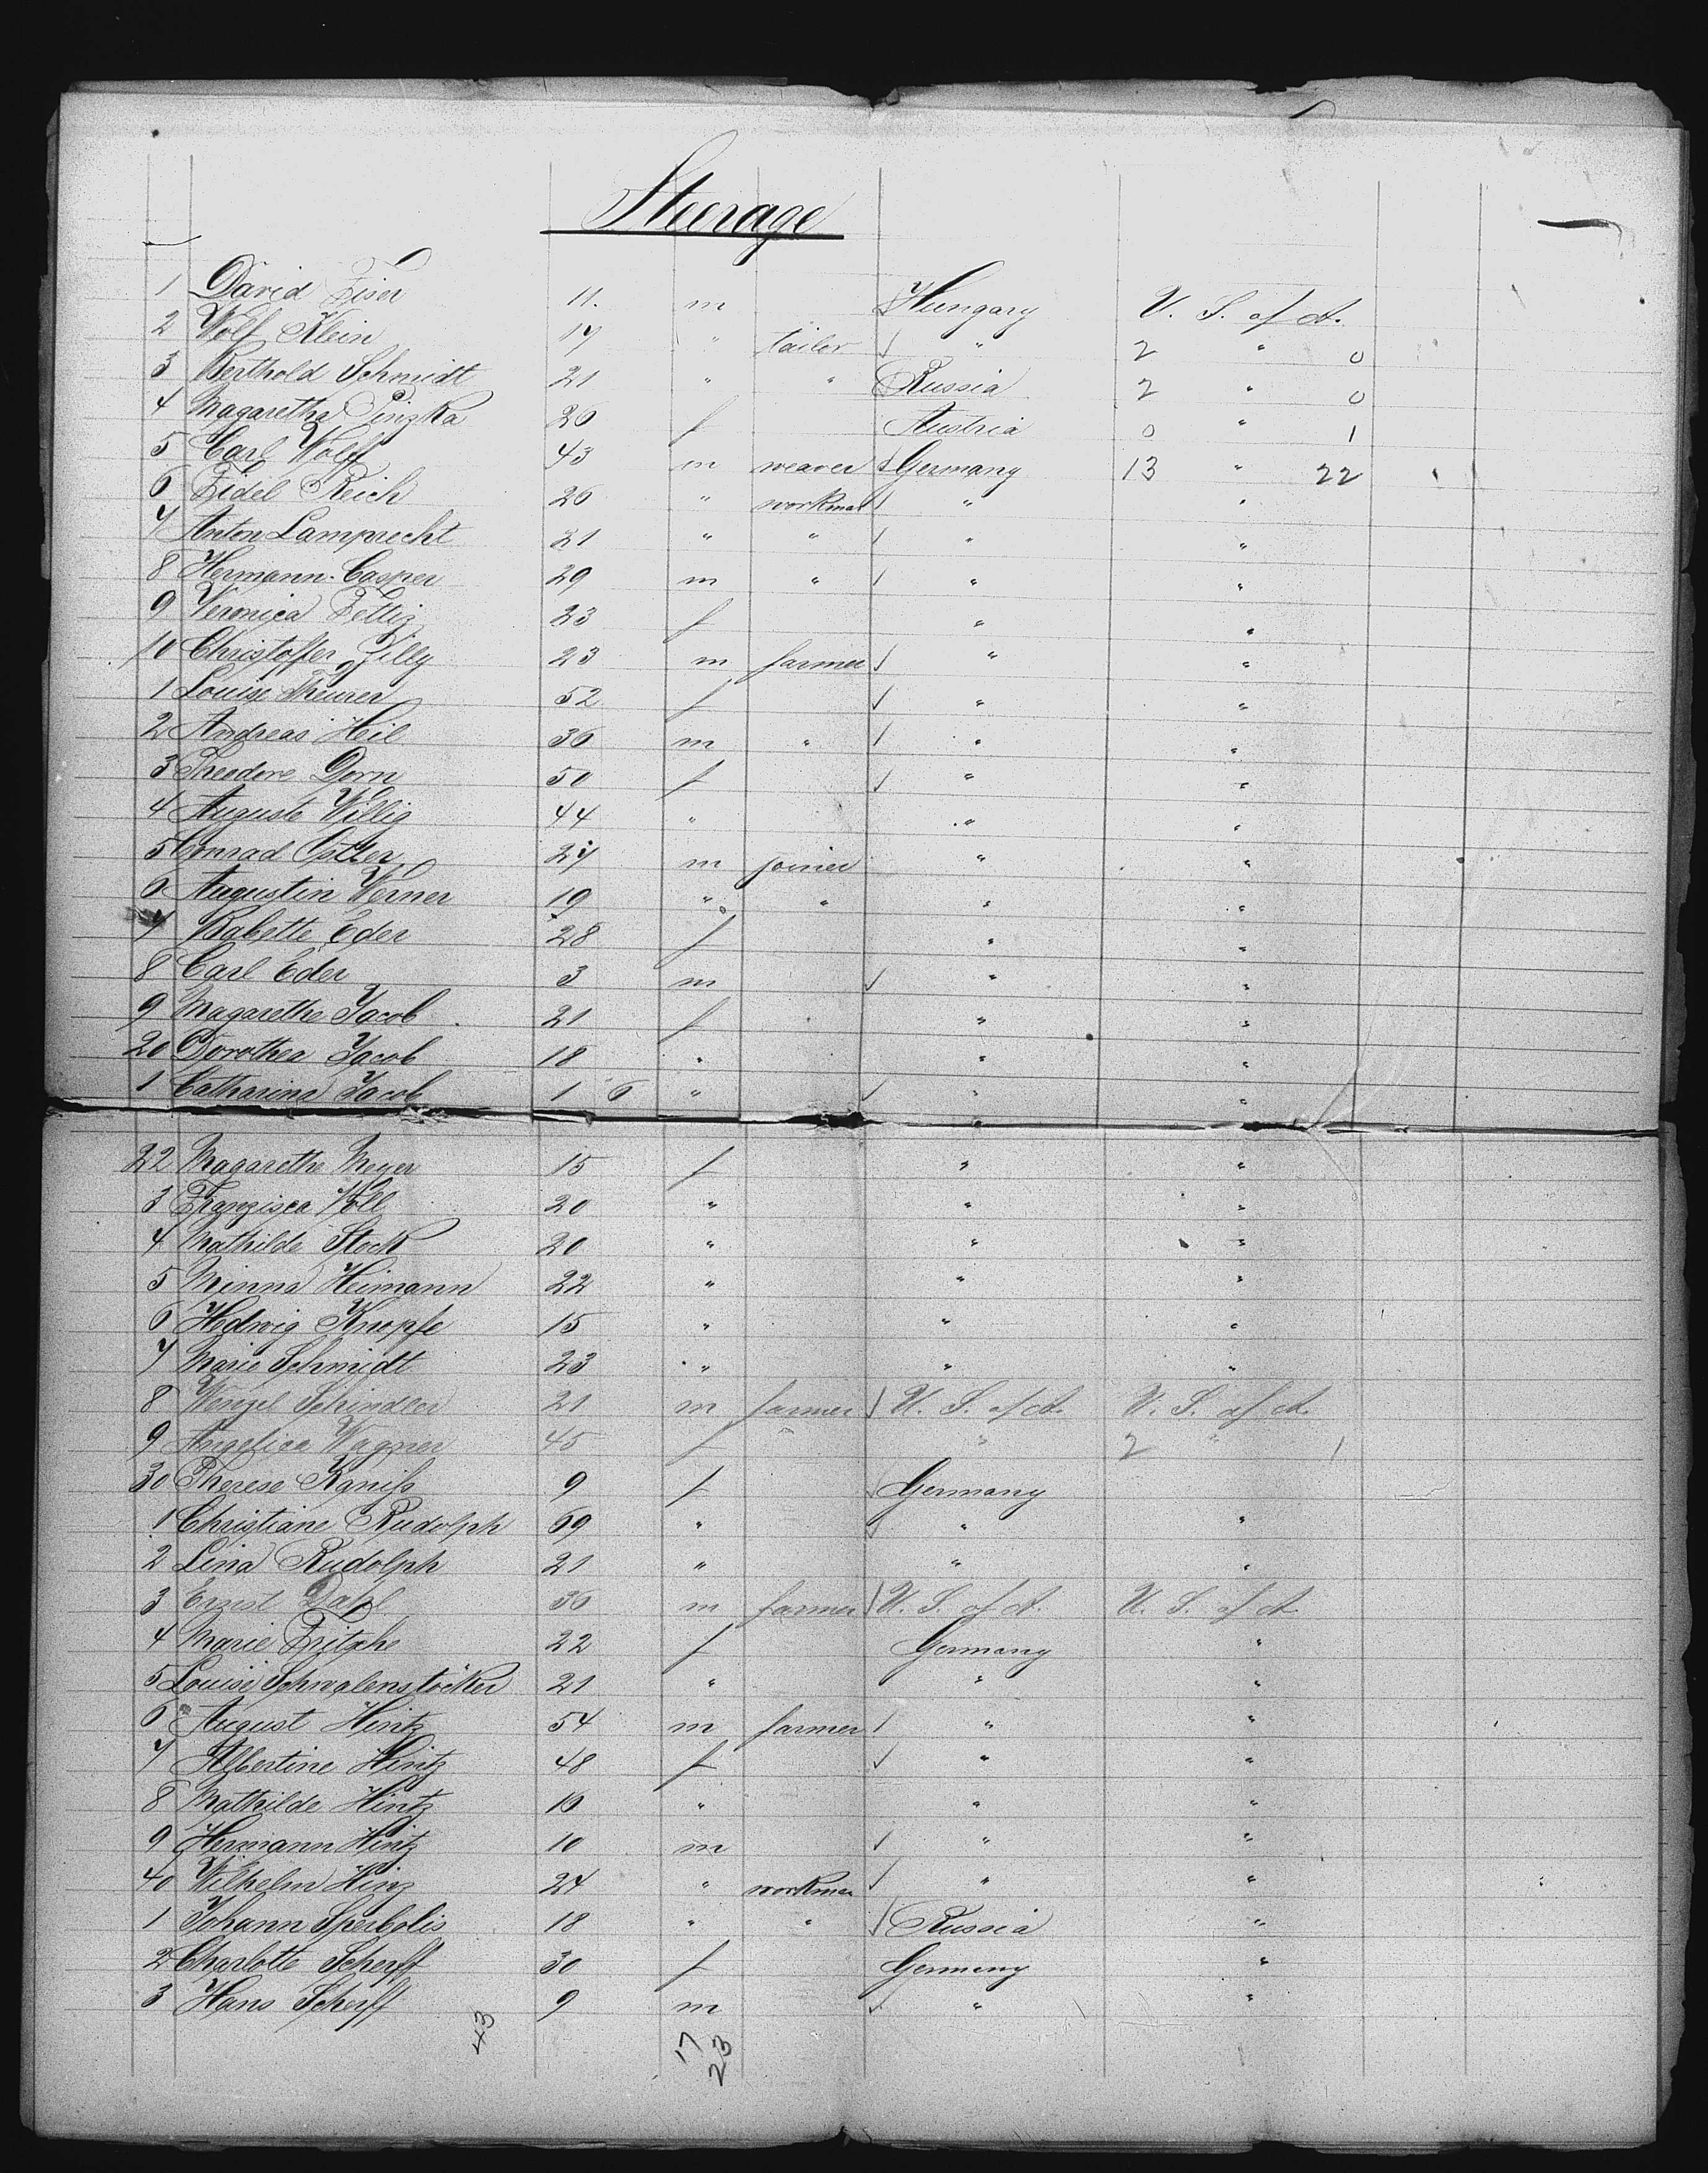 Steerage
1 David Fiser 11. m Hungary U. S. of A.
2 Wolf Klein 17 " tailor " 2 " 0
3 Berthold Schmidt 21 " " Russia 2 " 0
4 Magaretha Pinzka 26 f Austria 0 " 1
5 Carl Wolff 43 m weaver Germany 13 " 22
6 Fidel Reich 26 " workman " "
7 Anton Lamprecht 21 " " " "
8 Hermann Casper 29 m " " "
9 Veronica Fettig 23 f " "
10 Christoffer Zilly 23 m farmer " "
1 Louise Theurer 52 f " "
2 Andreas Heil 36 m " " "
3 Theodore Dorn 50 f " "
4 Auguste Willig 44 " " "
5 Conrad 27 m joiner " "
6 Augustin Werner 19 " " " "
7 Babette Eder 28 f " "
8 Carl Eder 3 m " "
9 Magarethe Jacob 21 f " "
20 Dorothea Jacob 18 " " "
1 Catharina Jacob 1 6 " " "
22 Magarethe Meyer 15 f " "
3 Franzisca Voll 20 " " "
4 Mathilde Stock 20 " " "
5 Minna Heimann 22 " " "
6 Hedwig Knopfe 15 " " "
7 Marie Schmidt 23 " " "
8 Wenzel Schindler 21 m farmer U. S. of A. U. S. of A.
9 Angelica Wagner 45 f " " 2 " 1
30 Therese 9 f Germany
1 Christiane Rudolph 69 " " "
2 Lina Rudolph 21 " " "
3 Ernst 36 m farmer U. S. of A. U. S. of A.
4 Marie Fritzche 22 f Germany "
5 Louise Schwalenstöcker 21 " " "
6 August Hintz 54 m farmer " "
7 Albertine Hintz 48 f " "
8 Mathilde Hintz 16 " " "
9 Hermann Hintz 10 m " "
40 Wilhelm Hinz 24 " workman " "
1 Johann Sperbolis 18 " " Russia "
2 Charlotte Scherff 30 f Germany "
3 Hans Scherff 9 m " "
43 17
23